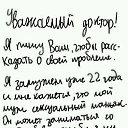 Уважаемый доктор!
Я пишу Вам, чтобы рас-
сказать о своей проблеме.
Я замужем уже 22 года
и мне кажется, что мой
муж сексуальный маньяк.
Он может заниматься со